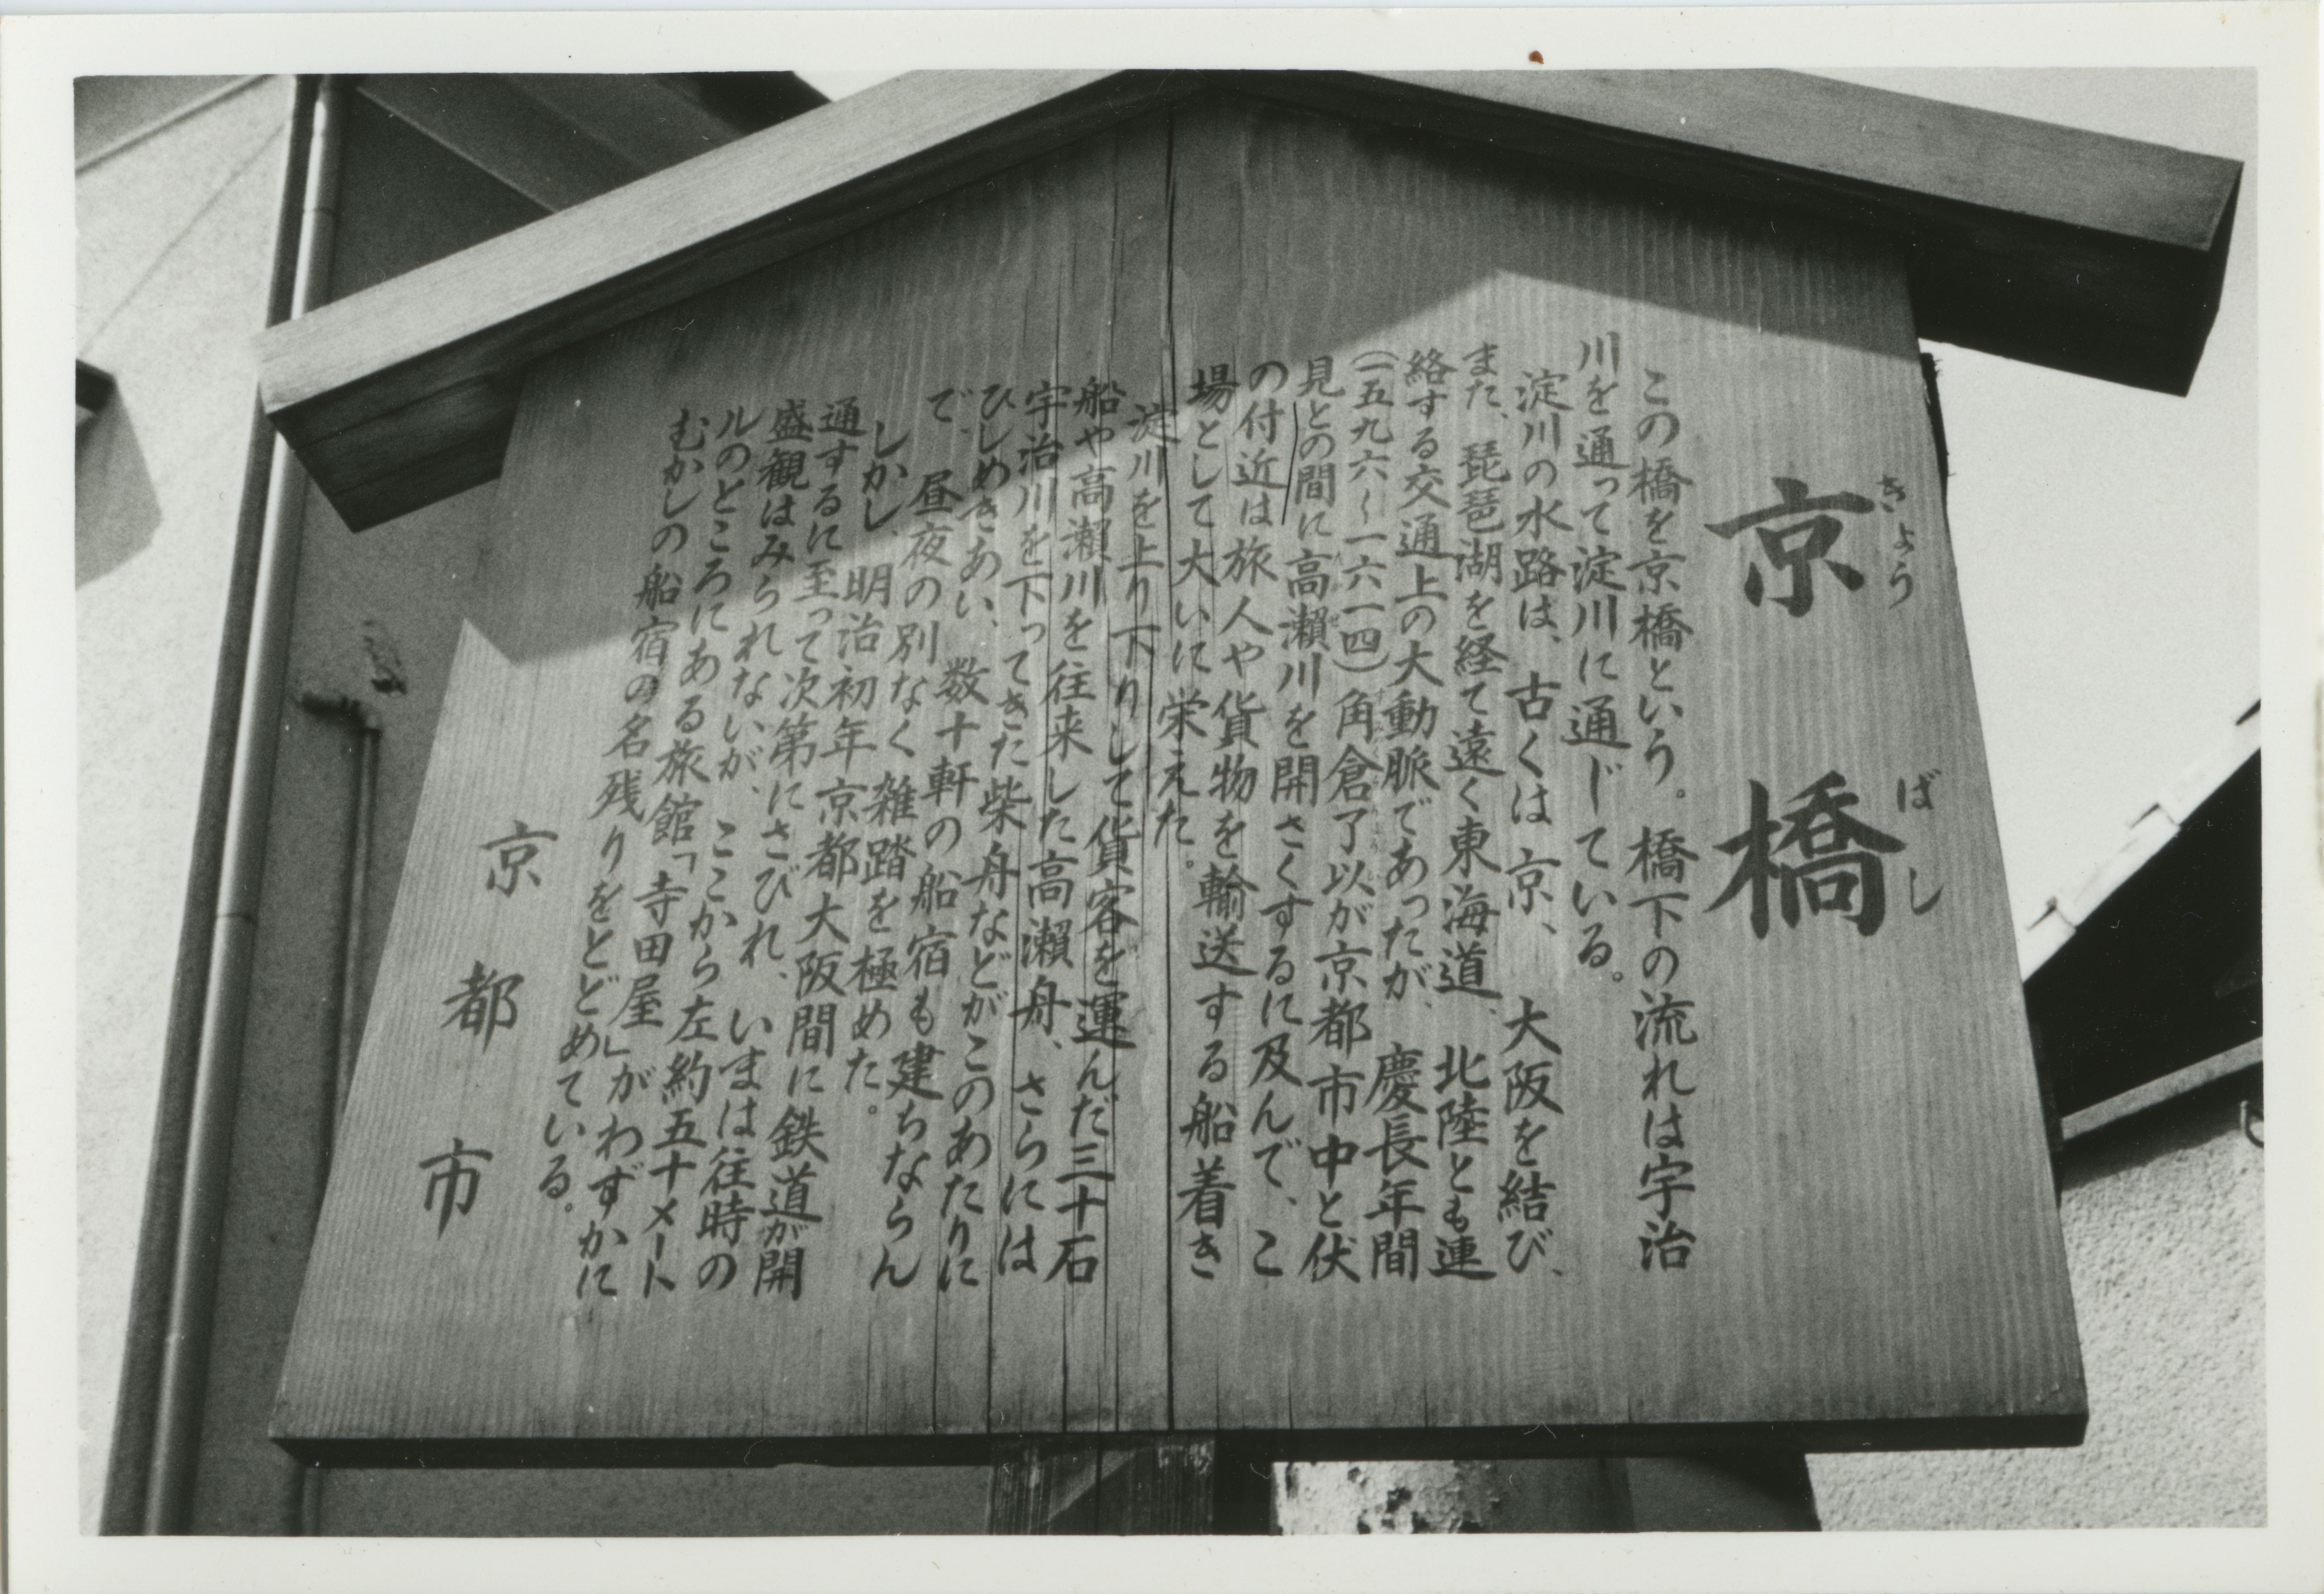 京橋
きょうばし
この橋を京橋という。橋下の流れは宇治
川を通って淀川に通じている。
淀川の水路は、古くは京、大阪を結び、
また、琵琶湖を経て遠く東海道、北陸とも連
絡する交通上の大動脈であったが、慶長年間
(一五九六〜一六一四)角倉了以が京都市中と伏
見との間に高瀬川を開さくするに及んで、こ
の付近は旅人や貨物を輸送する船着き
場として大いに栄えた。
淀川を上り下りして貨客を運んだ三十石
船や高瀬川を往来した高瀬舟、さらには
宇治川を下ってきた柴舟などがこのあたりに
ひしめきあい、数十軒の船宿も建ちならん
で、昼夜の別なく雑踏を極めた。
しかし、明治初年京都大阪間に鉄道が開
通するに至って次第にさびれ、いまは往時の
盛観はみられないが、ここから左約五十メート
ルのところにある旅館「寺田屋」がわずかに
むかしの船宿の名残りをとどめている。
京都市